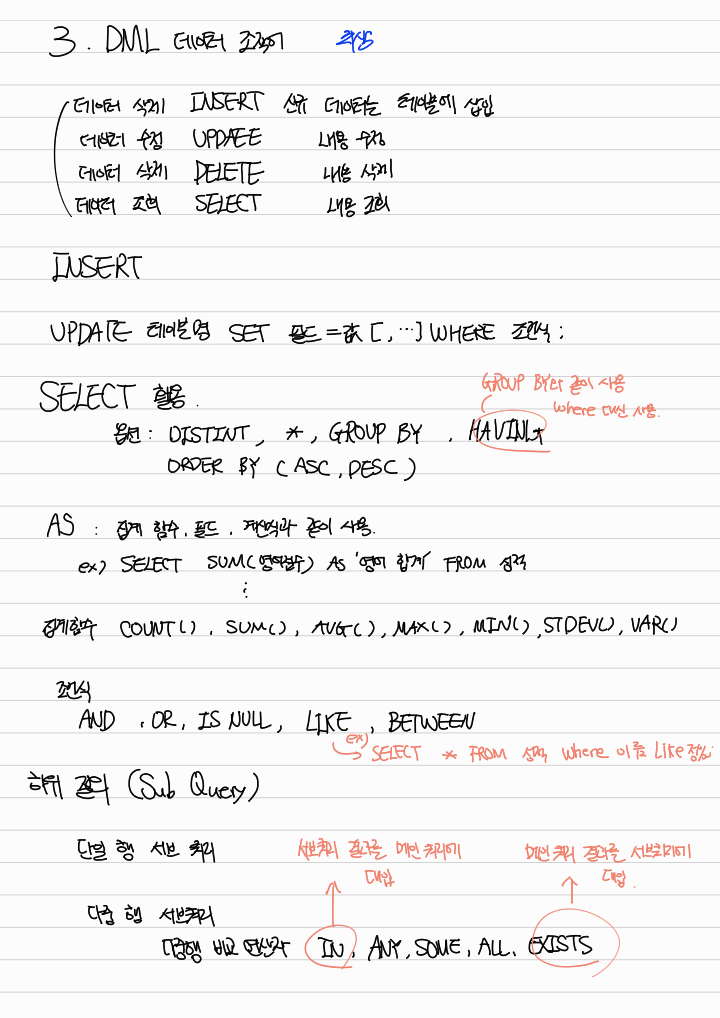 3. DML 데이터 조작어 핵심
데이터 삭제 INSERT 신규 데이터를 테이블에 삽입
데이터 수정 UPDATE 내용 수정
데이터 삭제 DELETE 내용 삭제
데이터 조회 SELECT 내용 조회
INSERT
UPDATE 테이블명 SET 필드 = 값 [, …] WHERE 조건식;
SELECT 활용.
GROUP BY와 같이 사용
Where 대신 사용.
옵션: DISTINT, *, GROUP BY, HAVING
ORDER BY (ASC, DESC)
AS : 집계 함수, 필드, 계산식과 같이 사용.
ex) SELECT SUM(영어점수) AS '영어 합계' FROM 성적
⋮
집계함수 COUNT(), SUM(), AVG(), MAX(), MIN(), STDEV(), VAR()
조건식
AND, OR, IS NULL, LIKE, BETWEEN
ex) SELECT * FROM 성적 Where 이름 Like
하위 질의 (Sub Query)
단일 행 서브 쿼리
서브쿼리 결과를 메인 쿼리에
대입
메인 쿼리 결과를 서브쿼리에
대입.
다중 행 서브쿼리
다중행 비교 연산자 IN, ANY, SOME, ALL, EXISTS